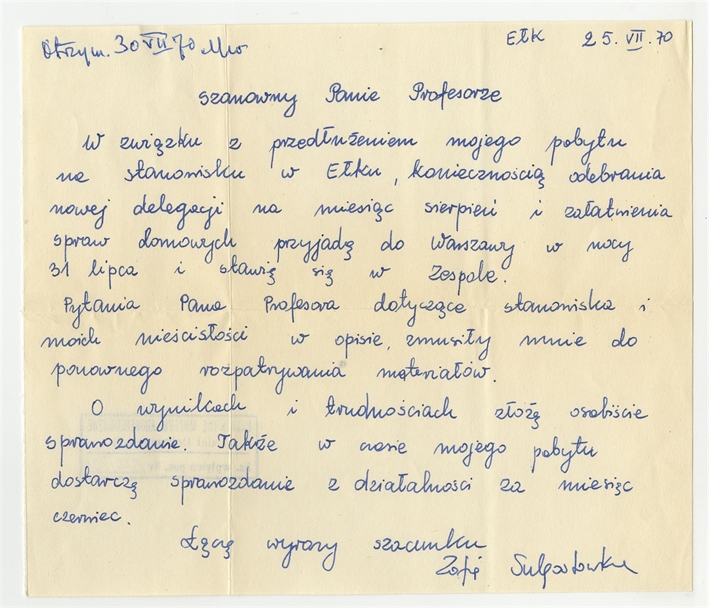 Otrzym. 30 VII 70
Ełk 25. VII. 70
Szanowny Panie Profesorze
W związku z przedłużeniem mojego pobytu
na stanowisku w Ełku, koniecznością odebrania
nowej delegacji na miesiąc sierpień i załatwienia
spraw domowych przyjadę do Warszawy w nocy
31 lipca i stawię się w Zespole.
Pytania Pana Profesora dotyczące stanowiska i
moich nieścisłości w opisie, zmusiły mnie do
ponownego rozpatrywania materiałów.
O wynikach i trudnościach złożę osobiście
sprawozdanie. Także w czasie mojego pobytu
dostarczę sprawozdanie z działalności za miesiąc
czerwiec.
Łączę wyrazy szacunku
Zofia Sulgostowska